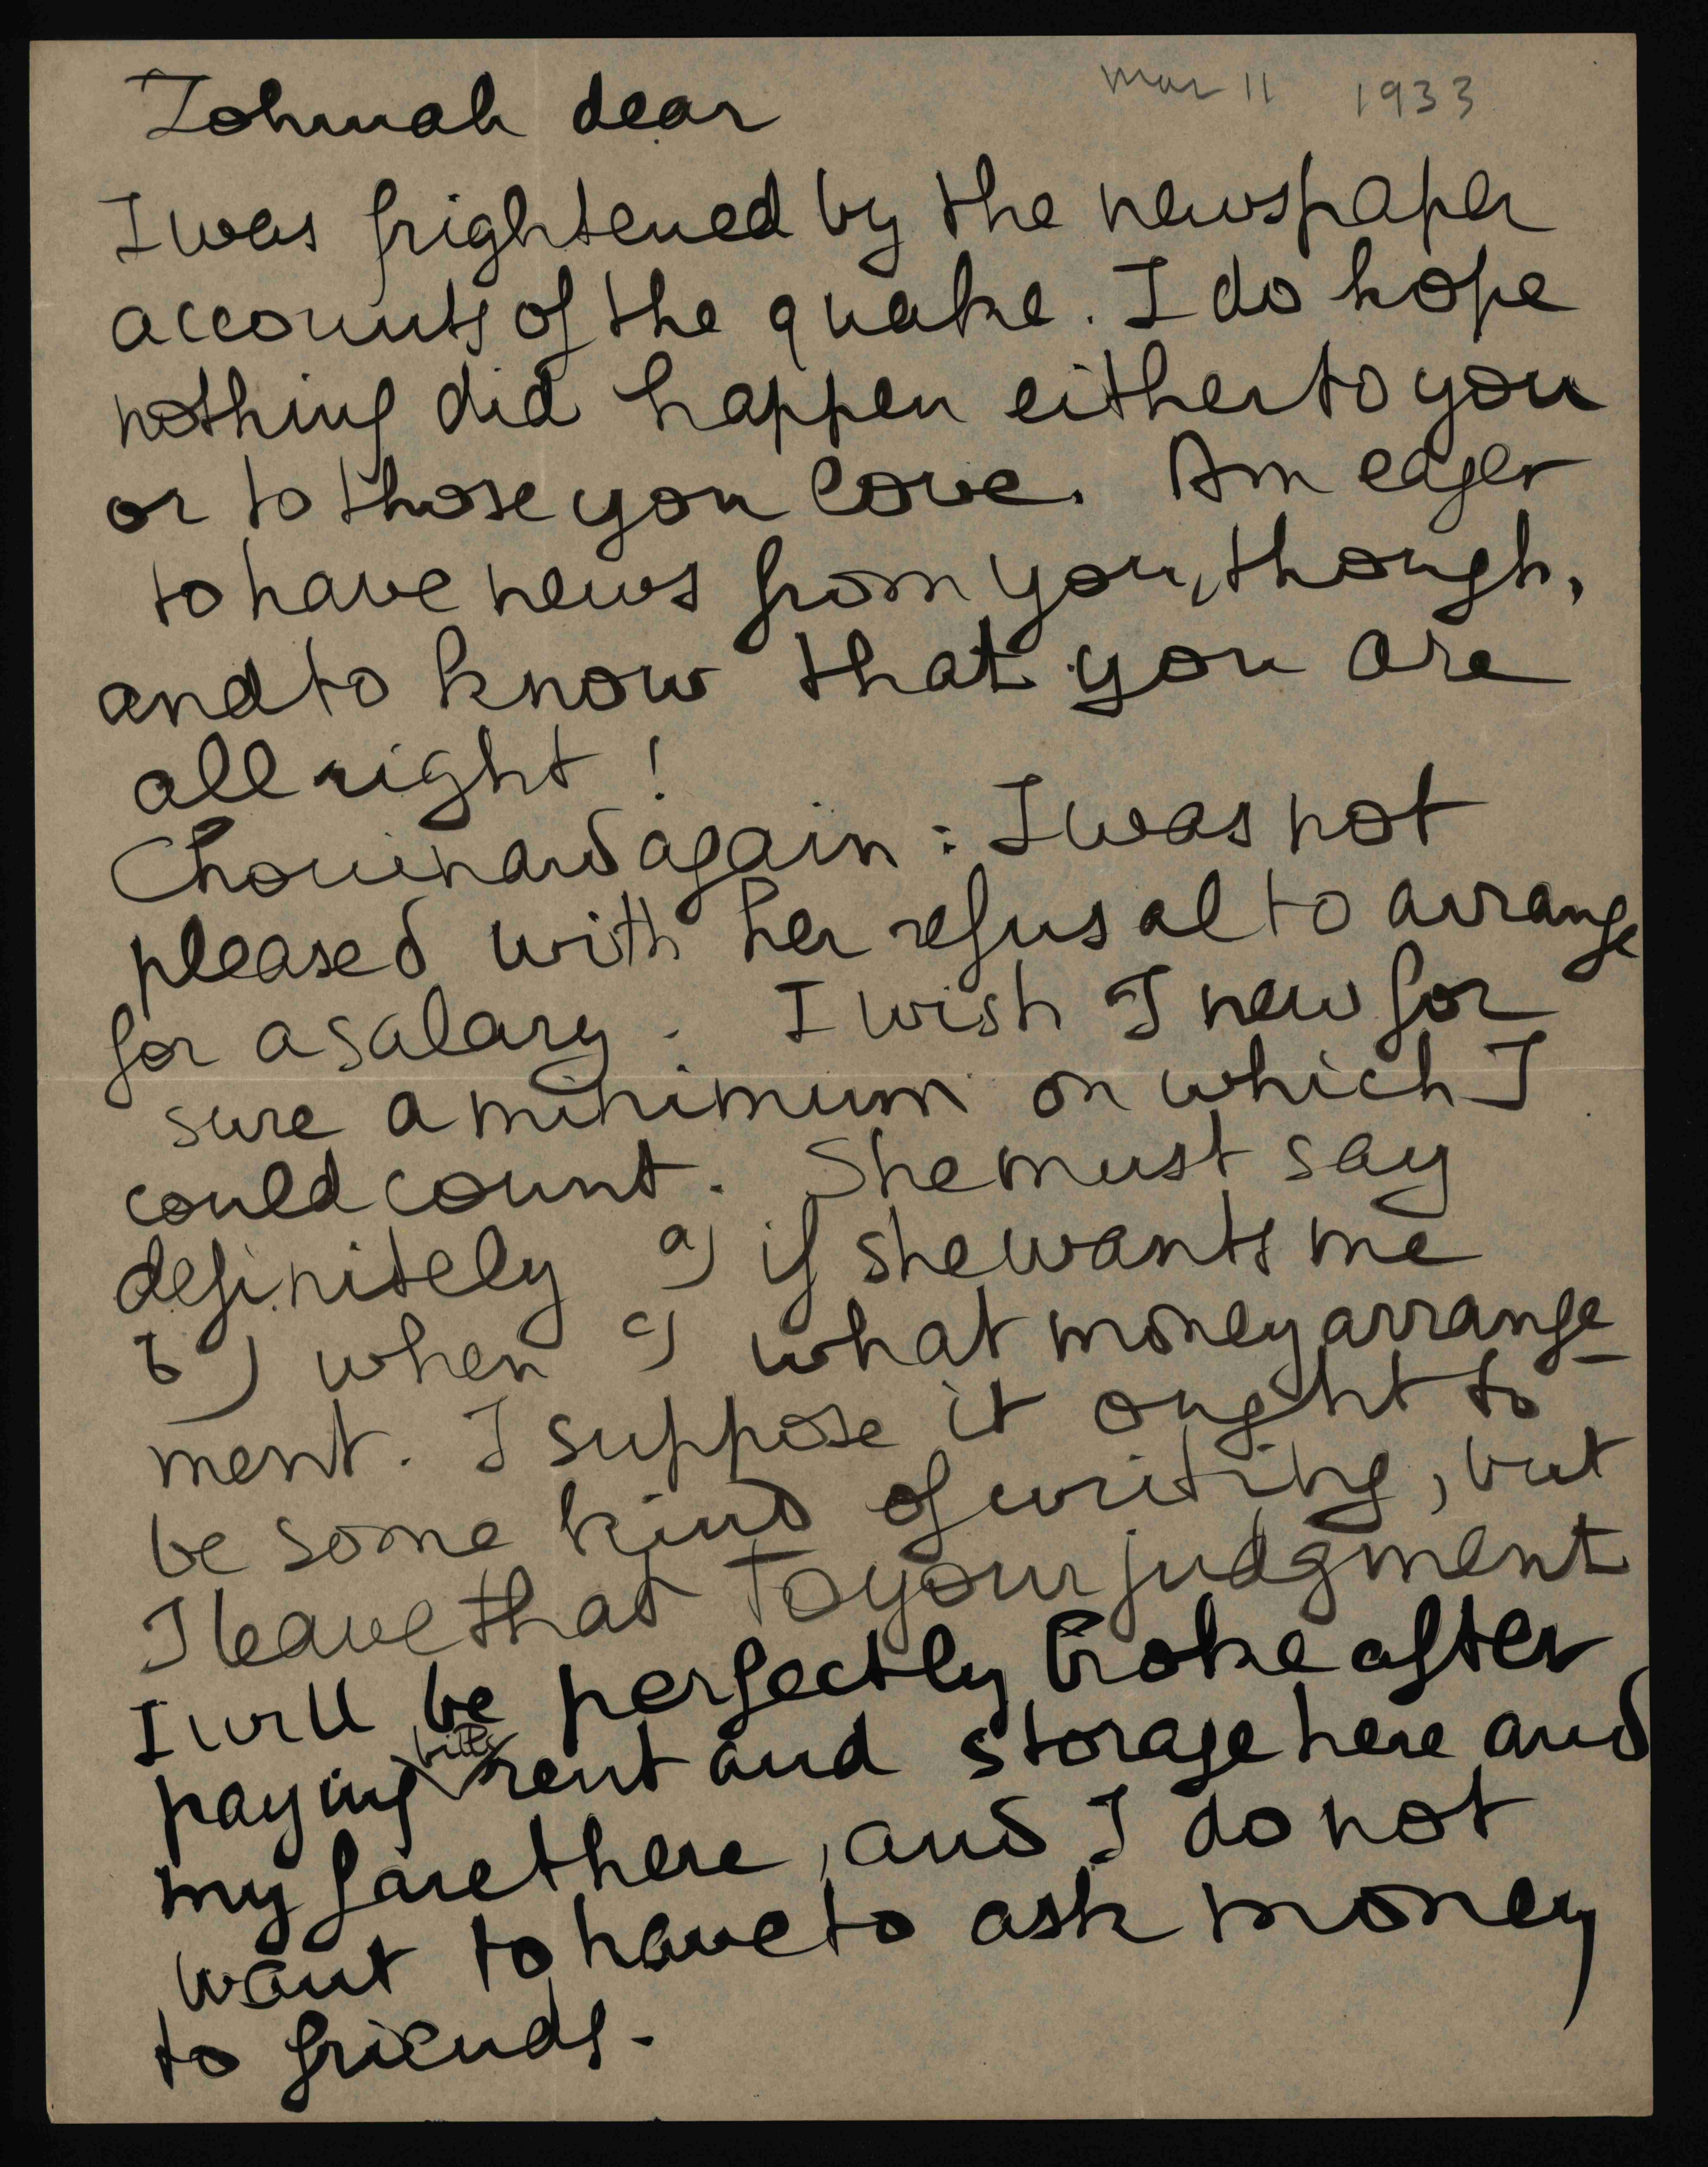 Zohmah dear
mar 11 1933
I was frightened by the newspaper
accounts of the quake. I do hope
nothing did happen either to you
or to those you love. Am eager
to have news from you, though,
and to know that you are
all right !
Chouinard again : I was not
pleased with her refusal to arrange
for a salary. I wish I new for
sure a minimum on which I
could count. She must say
definitely a) if she wants me
b) when c) what money arrange-
ment. I suppose it ought to
be some kind of writing, but
I leave that to your judgment
I will be perfectly broke after
paying bills rent and storage here and
my fare there, and I do not
want to have to ask money
to friends.